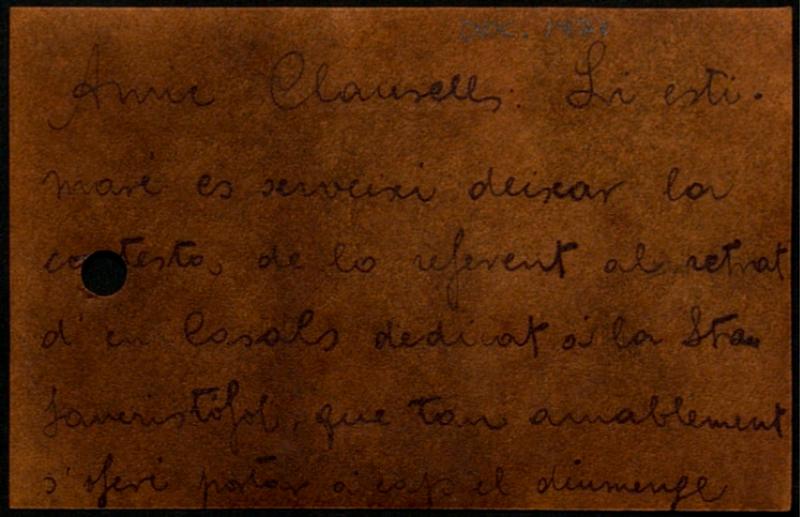 Dbre. 1921
Amic Clausells: Li esti-
maré es serveixi deixar la
contesta, de lo referent al retrat
d'en Casals dedicat á la Sta
Sancristófol, que tan amablement
s'oferí portar á cap el diumenge